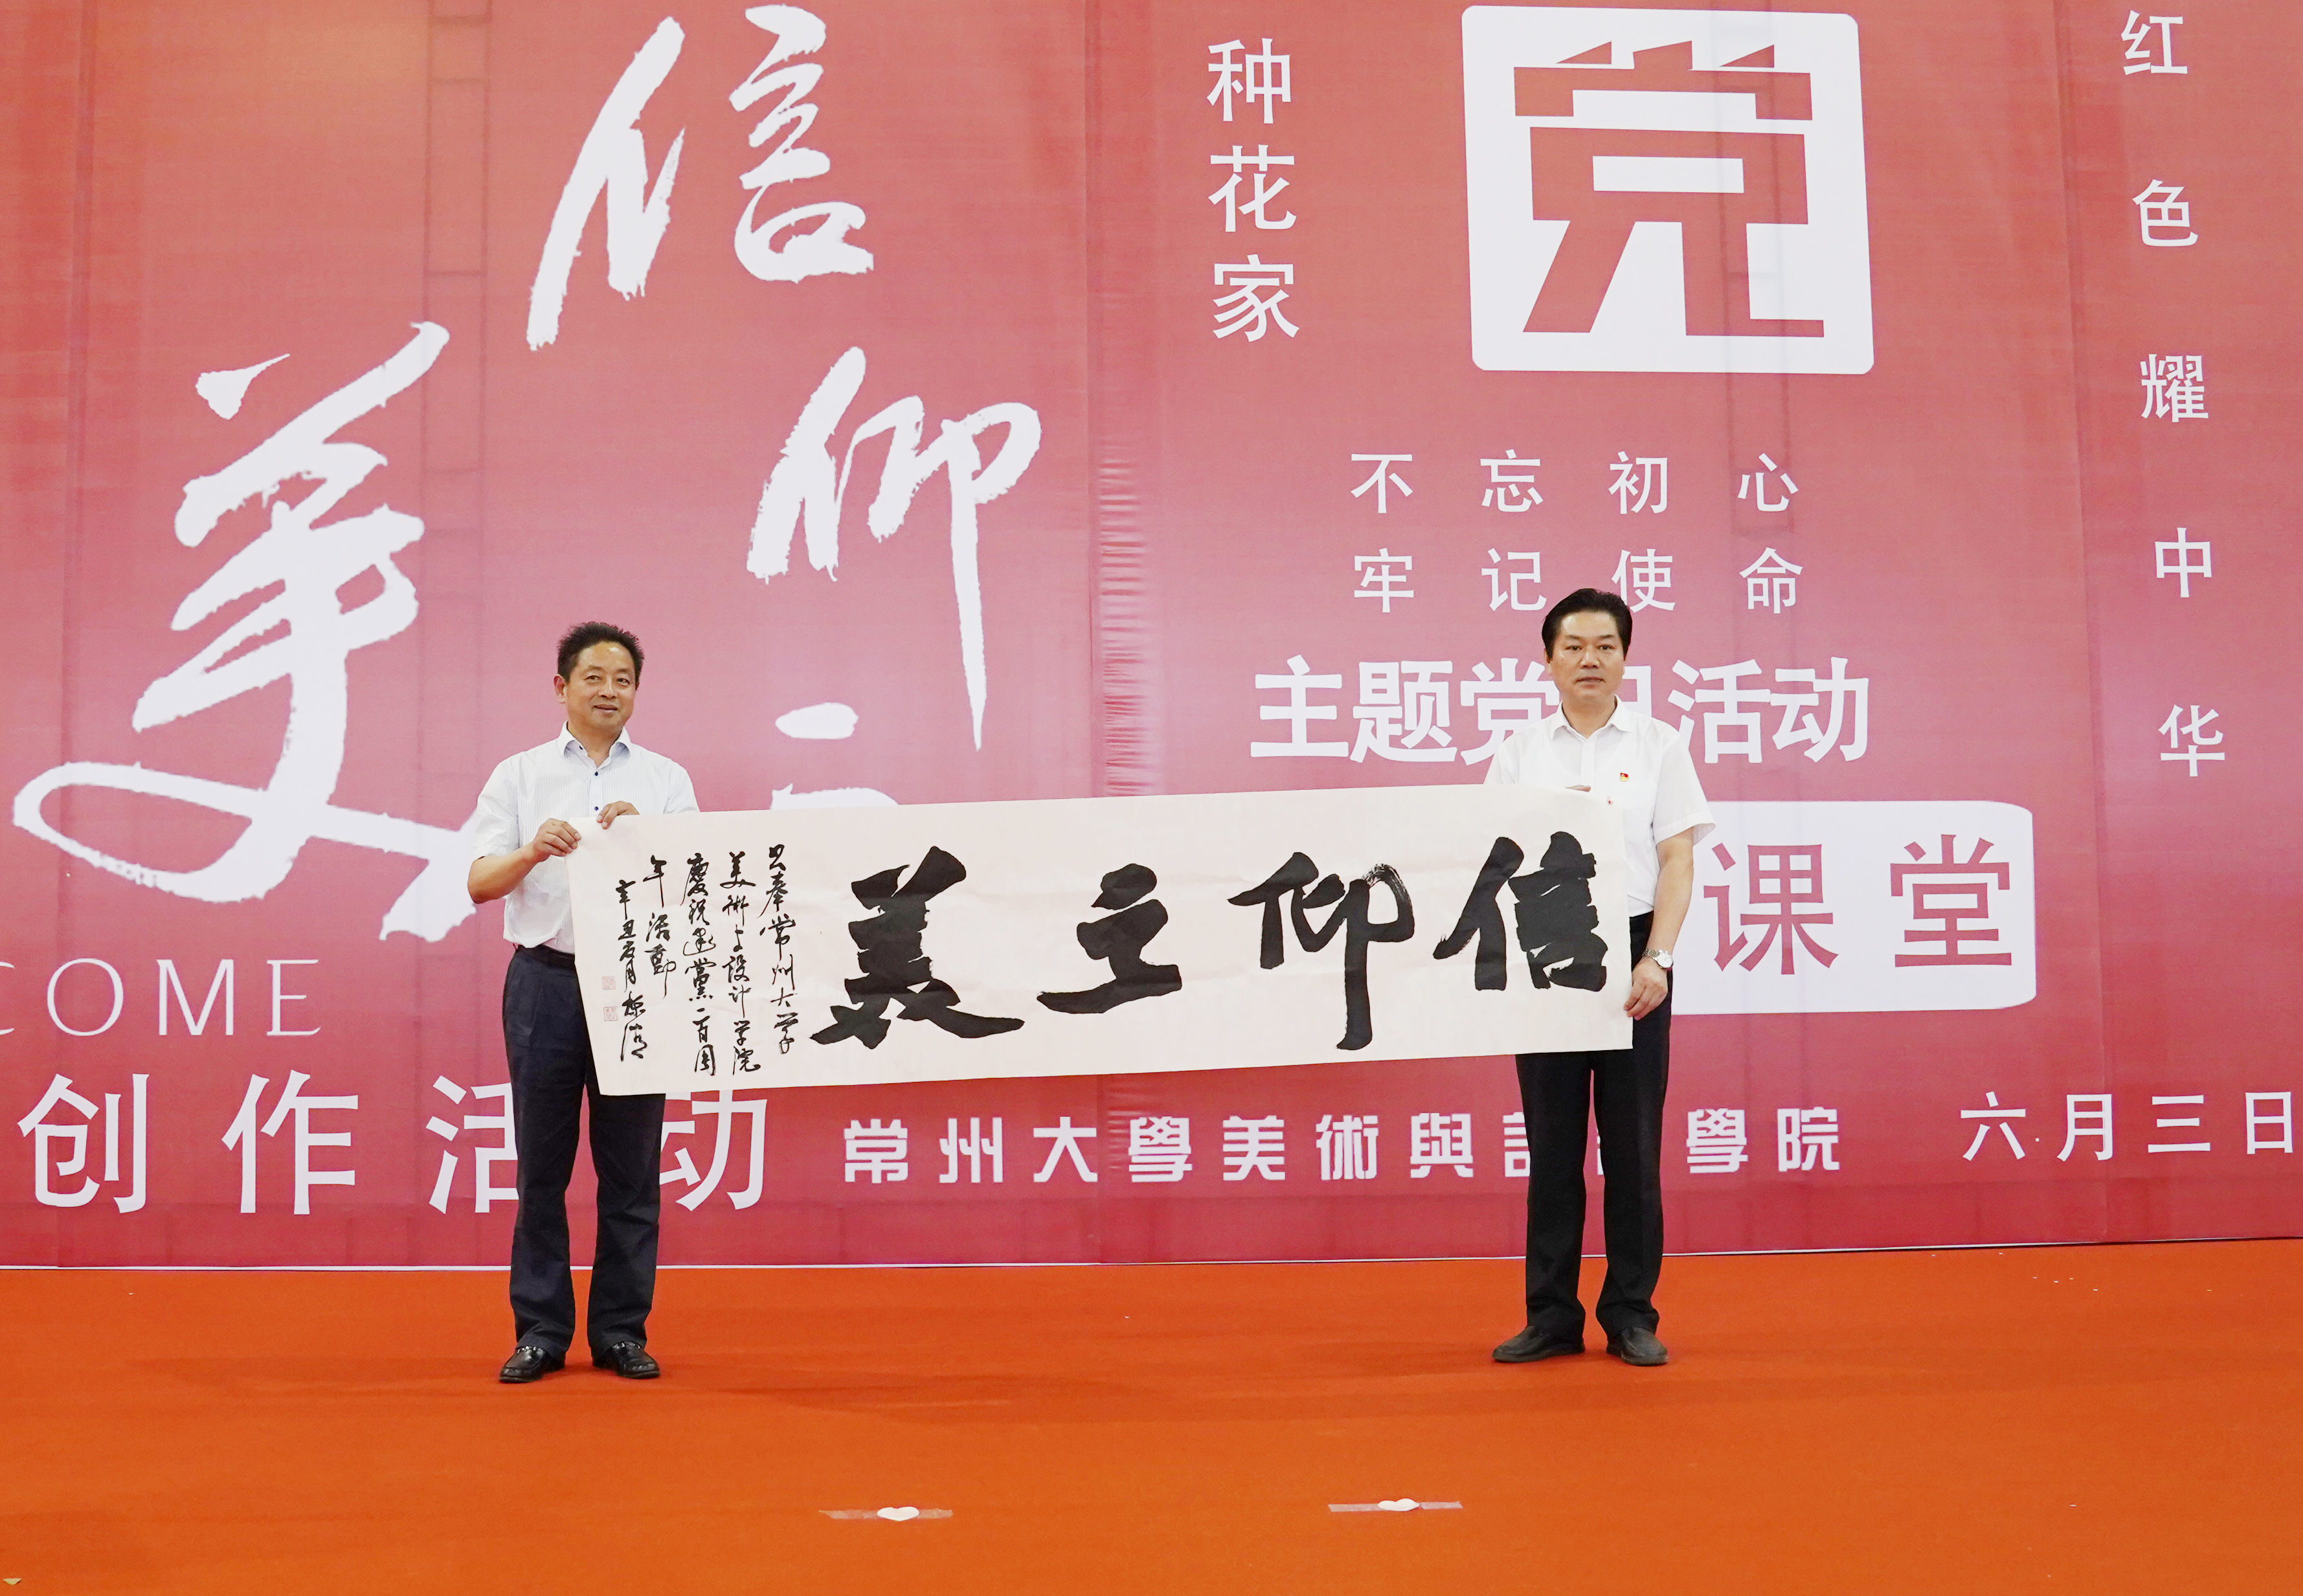 信仰
之
美
COME
创作活动
种花家
党
不忘初心
牢记使命
主题党日活动
课堂
红色耀中华
常州大學美術與設計學院
六月三日
信仰之美
书奉常州大学
美术与设计学院
慶祝建黨一百周
年活動
辛丑六月